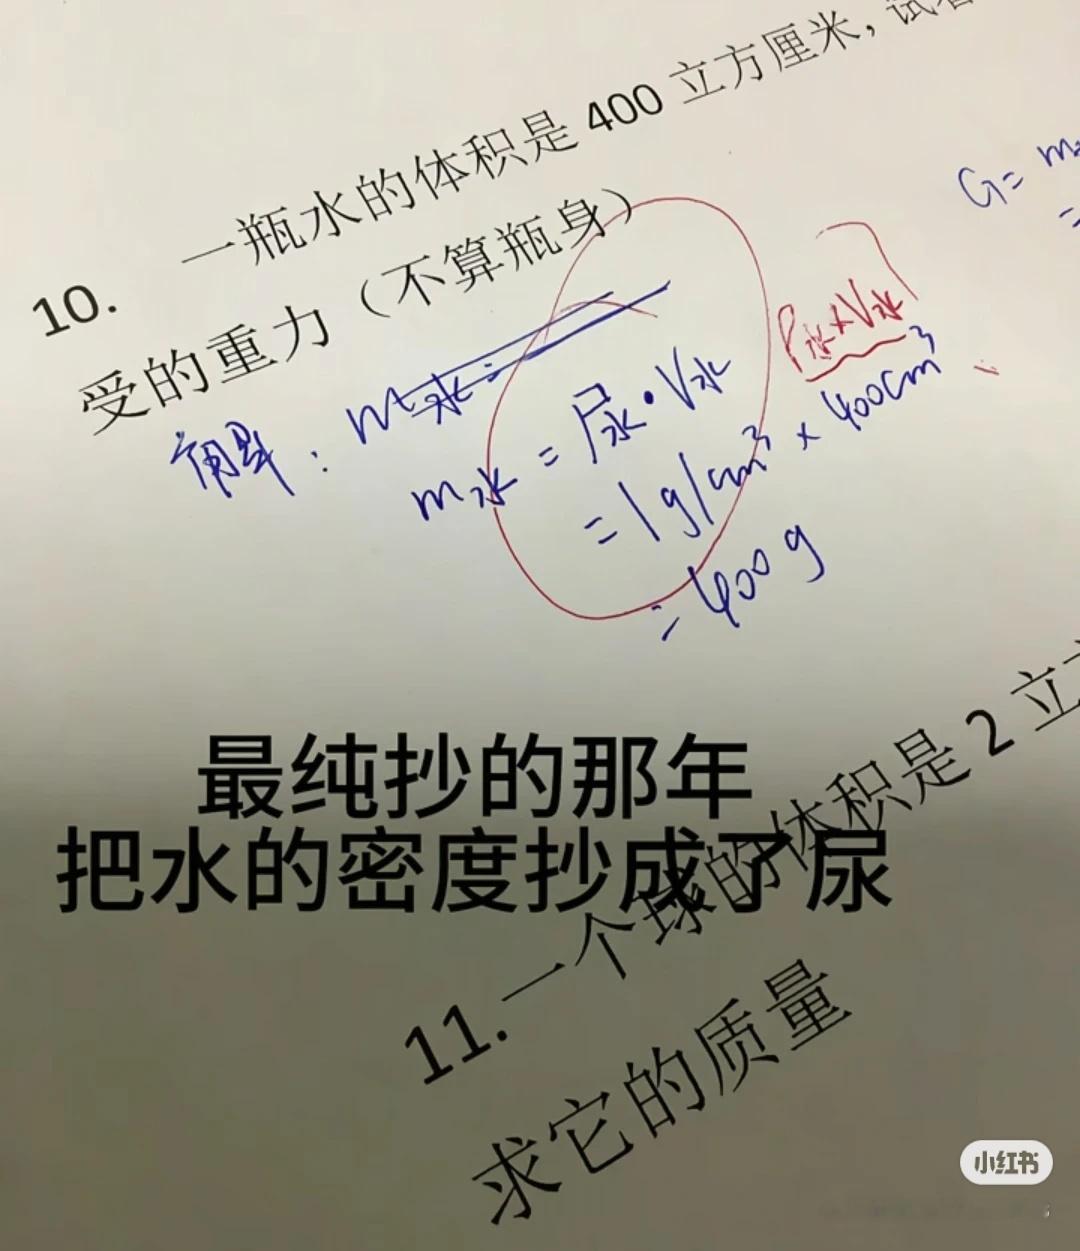 10. 一瓶水的体积是 400 立方厘米，试着
受的重力（不算瓶身）
解：m水=
m水 = 尿·V水
= 1g/cm³ × 400cm³
= 400g
ρ水×V水
G= m
=
最纯抄的那年
把水的密度抄成了尿
11. 一个球的体积是 2 立方
求它的质量
小红书